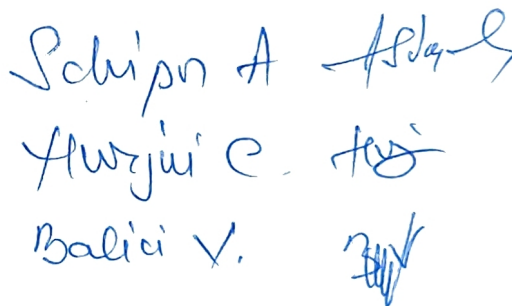 Schipor A
Hurjui C.
Balici V.